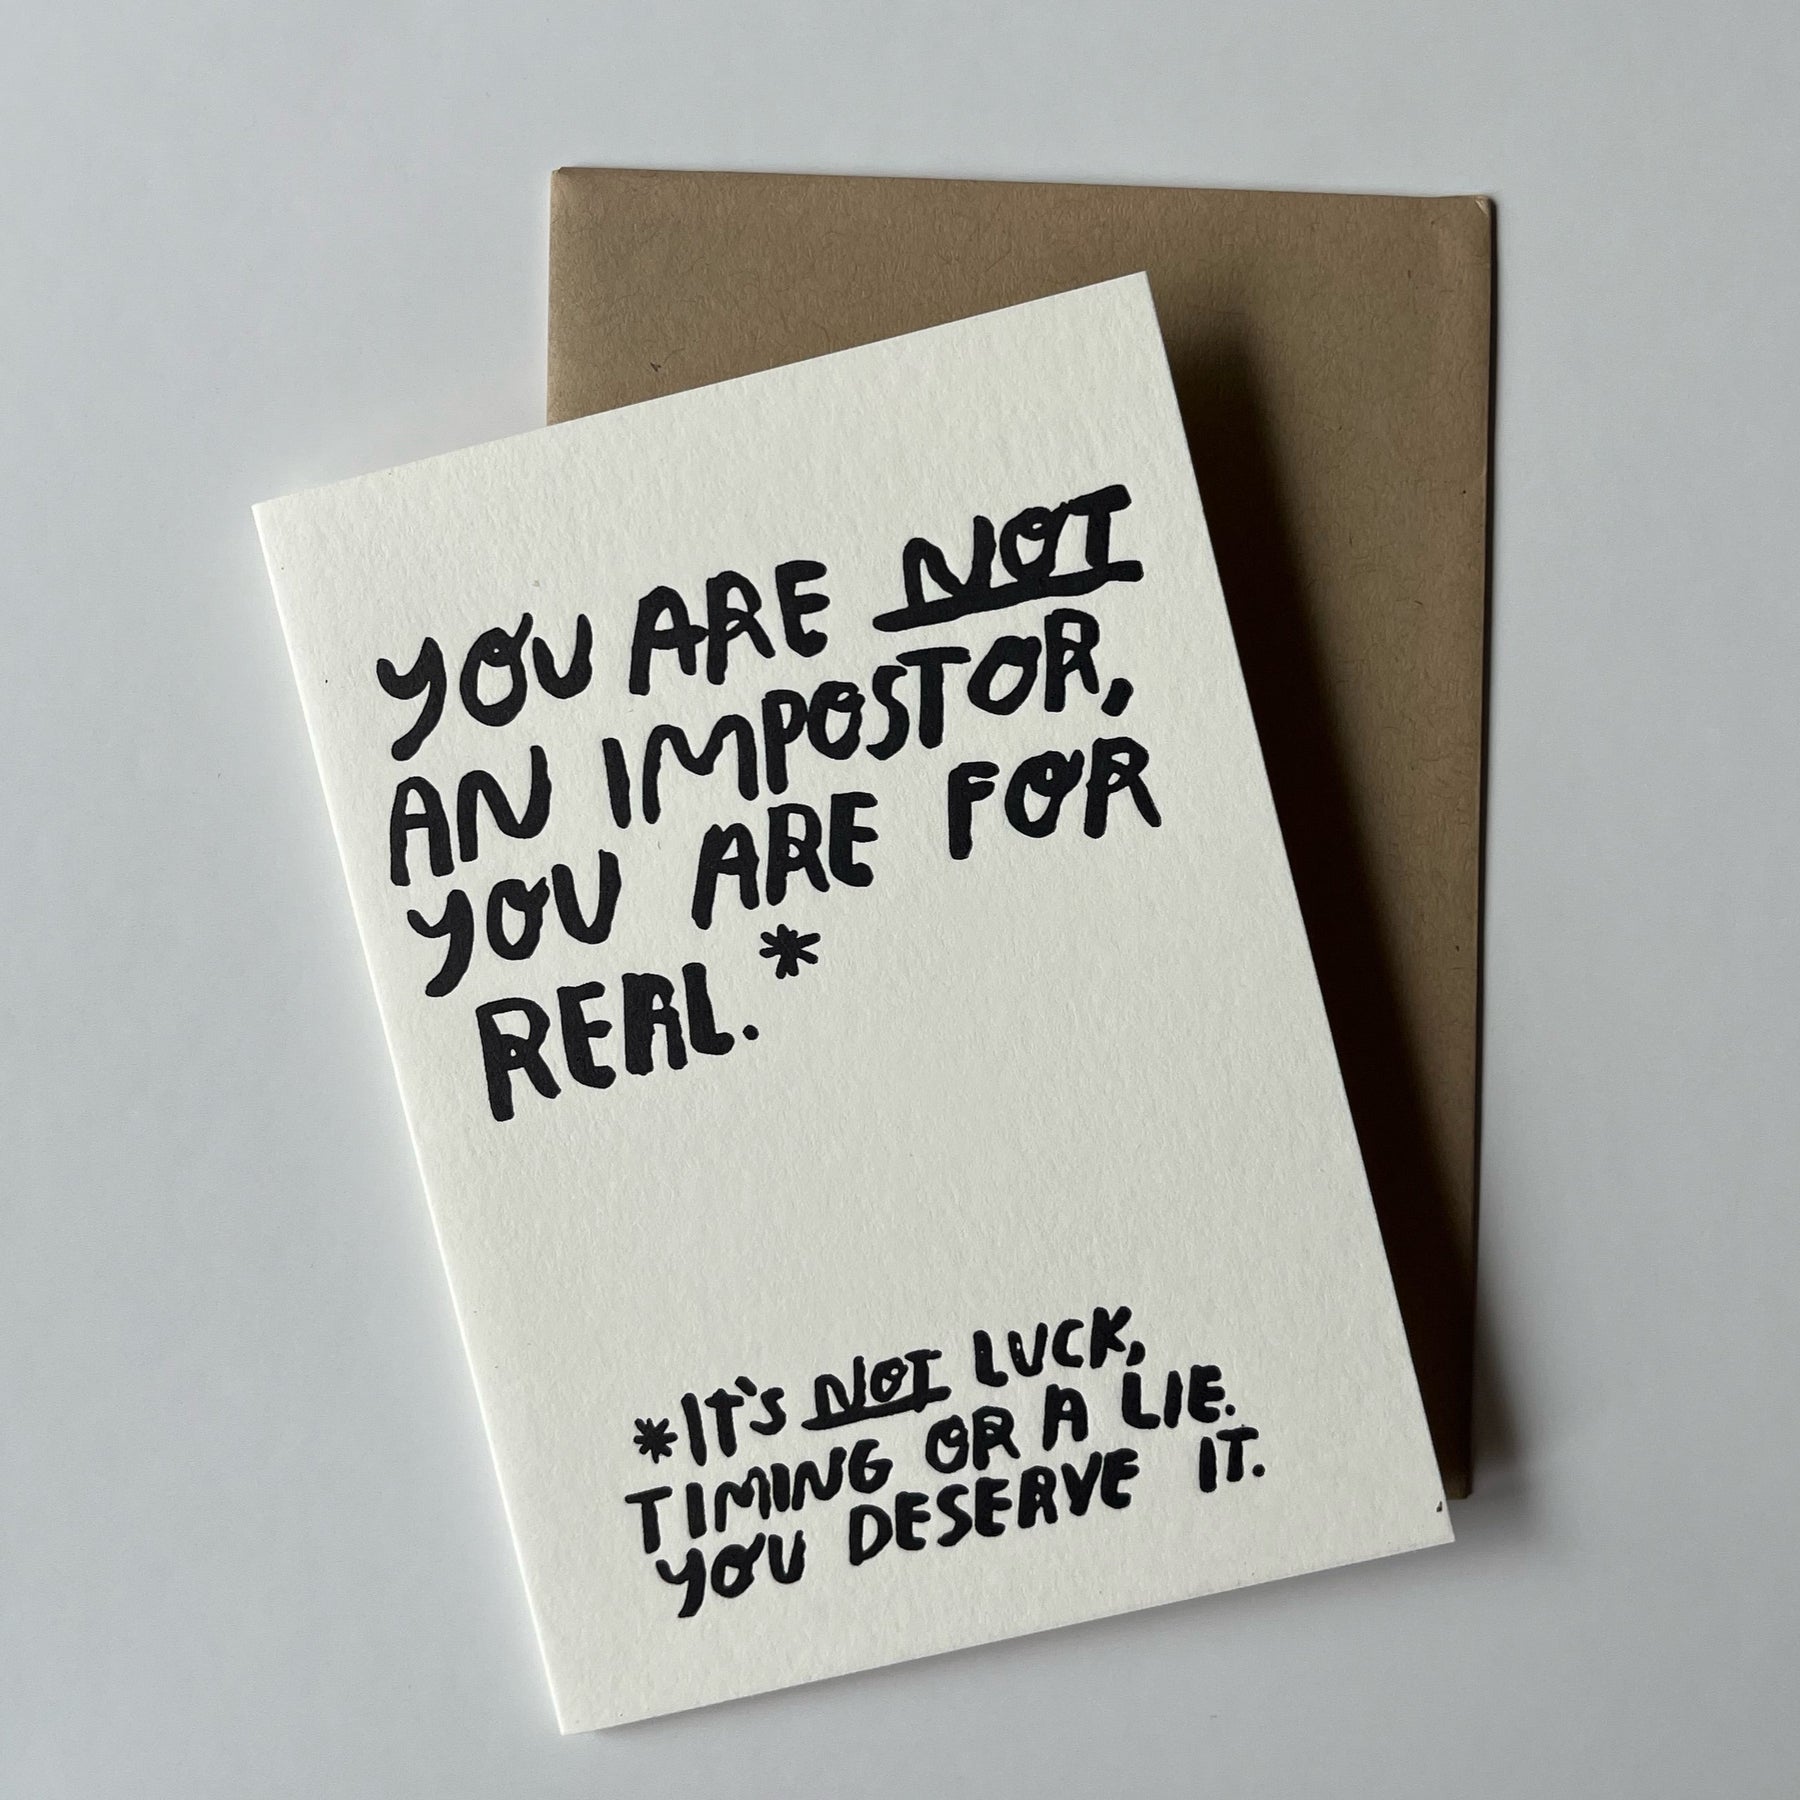 YOU ARE NOT
AN IMPOSTOR,
YOU ARE FOR
REAL.*
*IT'S NOT LUCK,
TIMING OR A LIE.
YOU DESERVE IT.